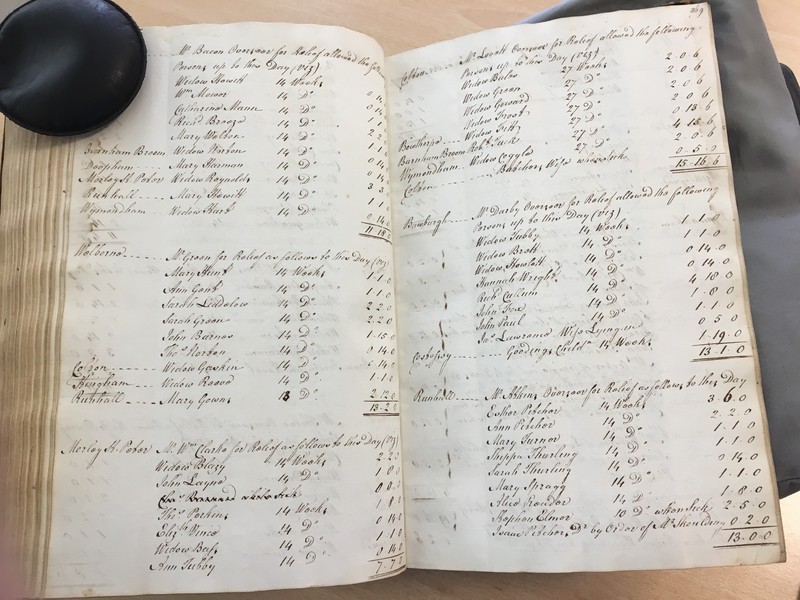 Mr Bacon Overseer for Releif allowed the follo
Persons up to this Day (Viz)
Widow Howitt 14 Weeks
Wm Mower 14 Do 0 14
Catharine Mann 14 Do
Richd Breeze 14 Do
Mary Walker 14 Do 2 2
Barnham Broom Widow Norton 14 Do 1 1
Deopham Mary Harman 14 Do 0 14
Morley St Peter Widow Reynolds 14 Do 3 3
Runhall Mary Howitt 14 Do 1 1
Wymondham Widow Hart 14 Do 0 14 0
11 18 0
Welborne Mr Green for Releif as follows to this Day (Viz)
Mary Hunt 14 Weeks 1 1 0
Ann Gent 14 Do 1 1 0
Sarah Liddelow 14 Do 2 2 0
Sarah Green 14 Do 2 2 0
John Barnes 14 Do 1 15 0
Thos Norton 14 Do 0 14 0
Colton Widow Gaskin 14 Do 0 14 0
Hingham Widow Reeve 14 Do 1 1 0
Runhall Mary Gowns 13 Do 2 12 0
13 2 0
Morley St Peter Mr Wm Clarke for Releif as follows to this day (Viz)
Widow Blazy 14 Weeks 2 2 0
John Layne 14 Do 1 0 0
when sick 0 0 0
Thos Perkins 14 Weeks 1 1 0
Elizth Vince 14 Do 0 14 0
Widow 14 Do 1 1 0
Ann Tubby 14 Do 0 14 0
7 7 0
269
Colton Mr Lovett Overseer for Releif allowed the following
Persons up to this Day (Viz)
Widow Bales 27 Weeks 2 0 6
Widow Green 27 Do 2 0 6
Widow Seward 27 Do 2 0 6
Widow Frost 27 Do 2 0 6
Widow Pitt 27 Do 0 13 6
Bawthorpe Robt Tuck 27 Do 4 15 6
Barnham Broom Widow Coggle 27 Do 2 0 6
Wymondham
Colton Wife when sick 0 5 0
15 16 6
Bawburgh Mr Darby Overseer for Releif allowed the following
Persons up to this Day (Viz)
Widow Tubby 14 Weeks 1 1 0
Widow Brett 14 Do 1 1 0
Widow Howlett 14 Do 0 14 0
Hannah Wright 14 Do 0 14 0
Rich Cullum 14 Do 4 18 0
John Fox 14 Do 1 8 0
John Paul 14 Do 1 1 0
Jas Lawrance Wife Lying-in 0 5 0
Costessey Goodings Childn 14 Weeks 1 19 0
13 1 0
Runhall Mr Atkins Overseer for Releif as follows to this Day
Esther Pitcher 14 Weeks 3 6 0
Ann Pitcher 14 Do 2 2 0
Mary Turner 14 Do 1 1 0
Thurling 14 Do 1 1 0
Sarah Thurling 14 Do 0 14 0
Mary Spragg 14 Do 1 1 0
Alice Reader 14 Do 1 8 0
Stephen Elmer 10 Do when sick 2 5 0
Isaac Pitcher Do by Order of Mr Thouling 0 2 0
13 0 0